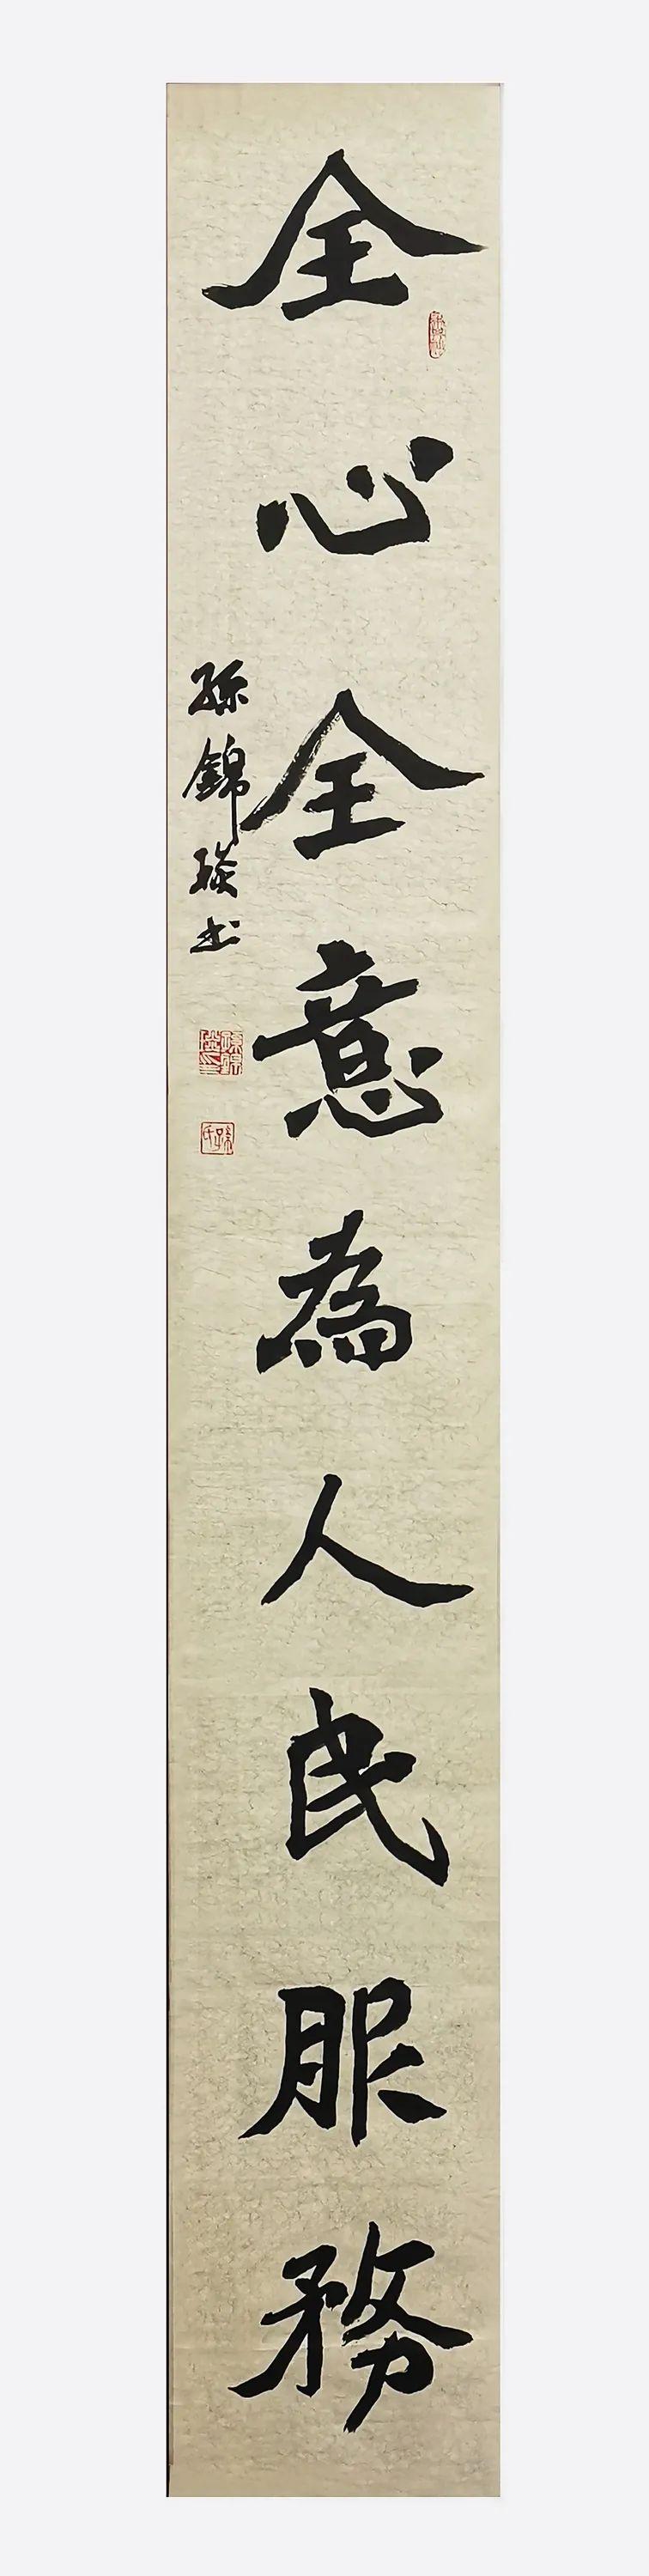 全心全意為人民服務
孫錦琰书